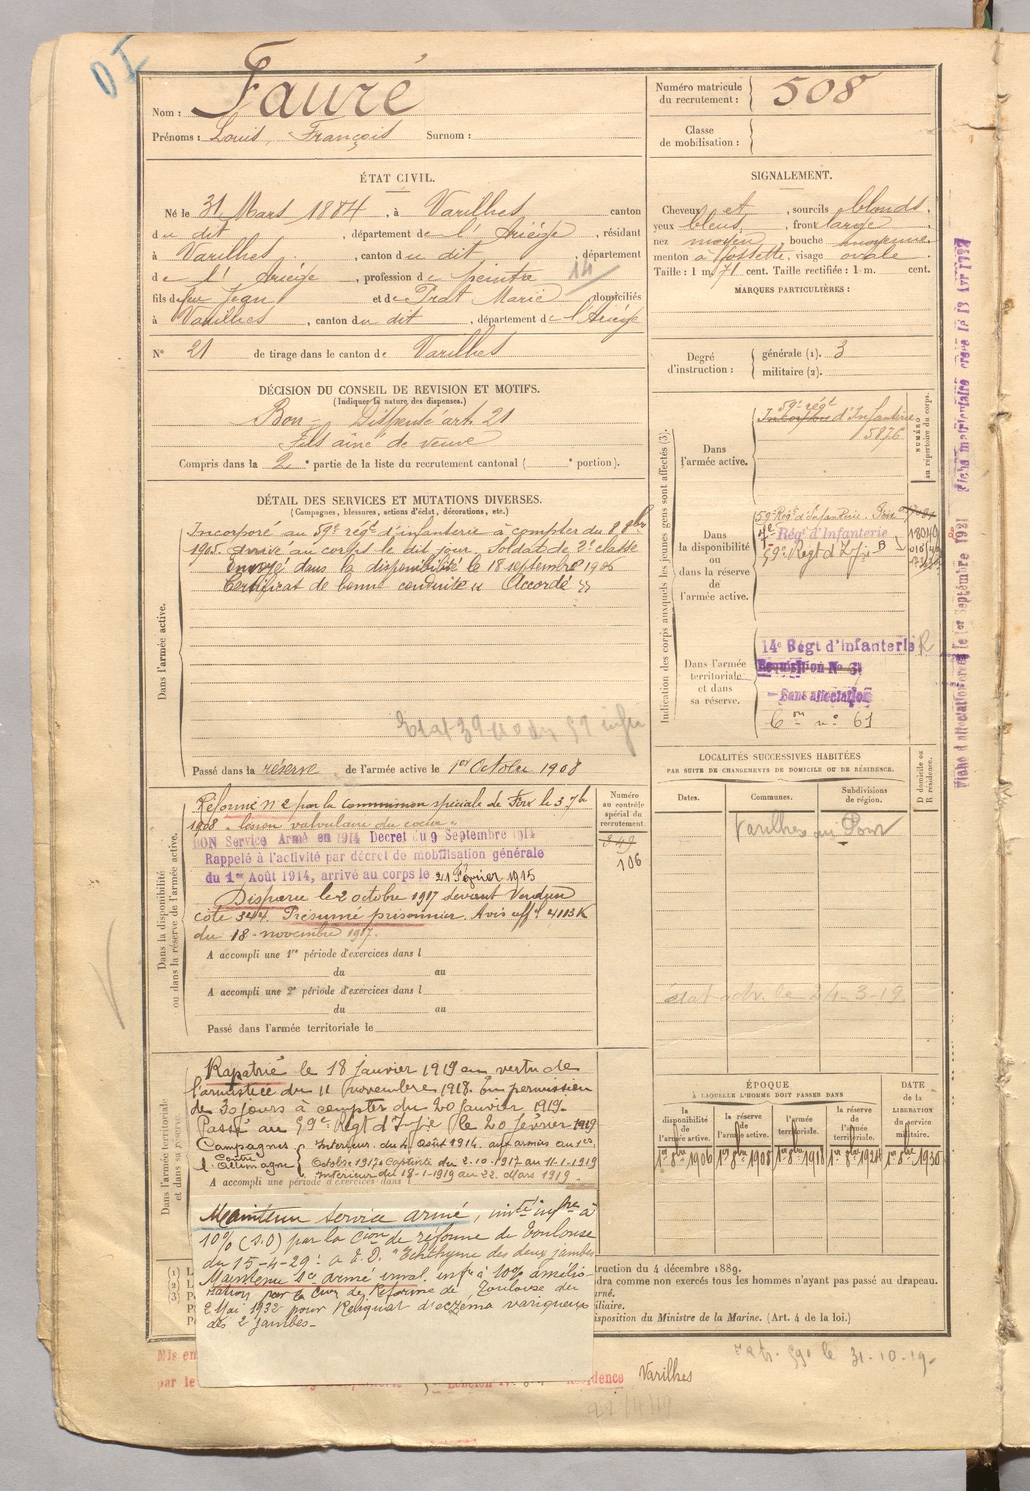 Nom : Fauré
Prénoms : Louis, François Surnom :
Numéro matricule du recrutement : 508
Classe de mobilisation :
ÉTAT CIVIL.
Né le 31 Mars 1884, à Varilhes canton
du dit, département de l'Ariège, résidant
à Varilhes, canton du dit, département
de l'Ariège, profession de peintre 14
fils de feu Jean et de Prat Marie domiciliés
à Varilhes, canton du dit, département de l'Ariège
N° 21 de tirage dans le canton de Varilhes
SIGNALEMENT.
Cheveux et, sourcils blonds,
yeux bleus, front large,
nez moyen, bouche moyenne,
menton à fossette, visage ovale.
Taille : 1 m. 71 cent. Taille rectifiée : 1 m. cent.
MARQUES PARTICULIÈRES :
Degré d'instruction : générale (1). 3
militaire (2).
DÉCISION DU CONSEIL DE REVISION ET MOTIFS.
(Indiquer la nature des dispenses.)
Bon – Dispensé art. 21
Fils aîné de veuve
Compris dans la 2e partie de la liste du recrutement cantonal ( e portion).
DÉTAIL DES SERVICES ET MUTATIONS DIVERSES.
(Campagnes, blessures, actions d'éclat, décorations, etc.)
Dans l'armée active.
Incorporé au 59e régt d'infanterie à compter du 8 8bre
1905. Arrivé au corps le dit jour, soldat de 2e classe
Envoyé dans la disponibilité le 18 septembre 1906
Certificat de bonne conduite « Accordé »
Passé dans la réserve de l'armée active le 1er Octobre 1908
Indication des corps auxquels les jeunes gens sont affectés (3).
NUMÉRO au répertoire du corps.
Dans l'armée active.
59e régt d'Infanterie
5876
Dans la disponibilité ou dans la réserve de l'armée active.
59e Régt d'Infanterie. Foix
Régt d'Infanterie
59e Régt d'Infie
Dans l'armée territoriale et dans sa réserve.
14e Régt d'Infanterie R
Réquisition N° 61
Sans affectation
n° 61
Dans la disponibilité ou dans la réserve de l'armée active.
Réformé n° 2 par la Commission spéciale de Foix le 3 7b
1908 « lésion valvulaire du coeur »
BON Service Armé en 1914 Décret du 9 Septembre 1914
Rappelé à l'activité par décret de mobilisation générale
du 1er Août 1914, arrivé au corps le 21 Février 1915
Disparu le 2 octobre 1917 devant Verdun
côte 344. Présumé prisonnier. Avis off. 4113 K
du 18 novembre 1917.
A accompli une 1re période d'exercices dans l
du au
A accompli une 2e période d'exercices dans l
du au
Passé dans l'armée territoriale le
Numéro au contrôle spécial du recrutement
106
LOCALITÉS SUCCESSIVES HABITÉES
PAR SUITE DE CHANGEMENTS DE DOMICILE OU DE RÉSIDENCE.
Dates. Communes. Subdivisions de région. D domicile ou R résidence.
24-3-19
Dans l'armée territoriale et dans sa réserve.
Rapatrié le 18 janvier 1919 en vertu de
l'armistice du 11 novembre 1918. En permission
de 30 jours à compter du 20 janvier 1919.
Passé au 59e Régt d'Infie le 20 février 1919
Campagnes contre l'Allemagne
Intérieur du 4 Août 1914. aux armées au 1er
Octobre 1917. Captivité du 2-10-1917 au 11-1-1919
Intérieur du 18-1-1919 au 22 Mars 1919.
A accompli une période d'exercices dans l
ÉPOQUE
À LAQUELLE L'HOMME DOIT PASSER DANS
la disponibilité de l'armée active. la réserve de l'armée active. l'armée territoriale. la réserve de l'armée territoriale. DATE DE LA LIBÉRATION DU service militaire.
1er 8bre 1906 1er 8bre 1908 1er 8bre 1918 1er 8bre 1924 1er 8bre 1930
Maintenu service armé, invté infre à
10% (S.O) par la Cion de réforme de Toulouse
du 15-4-29 : Echthyme des deux jambes
Maintenu sce armé inval. infre à 10%
par la Cion de Réforme de Toulouse du
2 Mai 1932 pour Reliquat d'eczéma variqueux
des 2 jambes.
(1)
(2)
(3)
truction du 4 décembre 1889.
dra comme non exercés tous les hommes n'ayant pas passé au drapeau.
urné.
iliaire.
isposition du Ministre de la Marine. (Art. 4 de la loi.)
le 31-10-19.
Mis en
par le
Résidence Varilhes